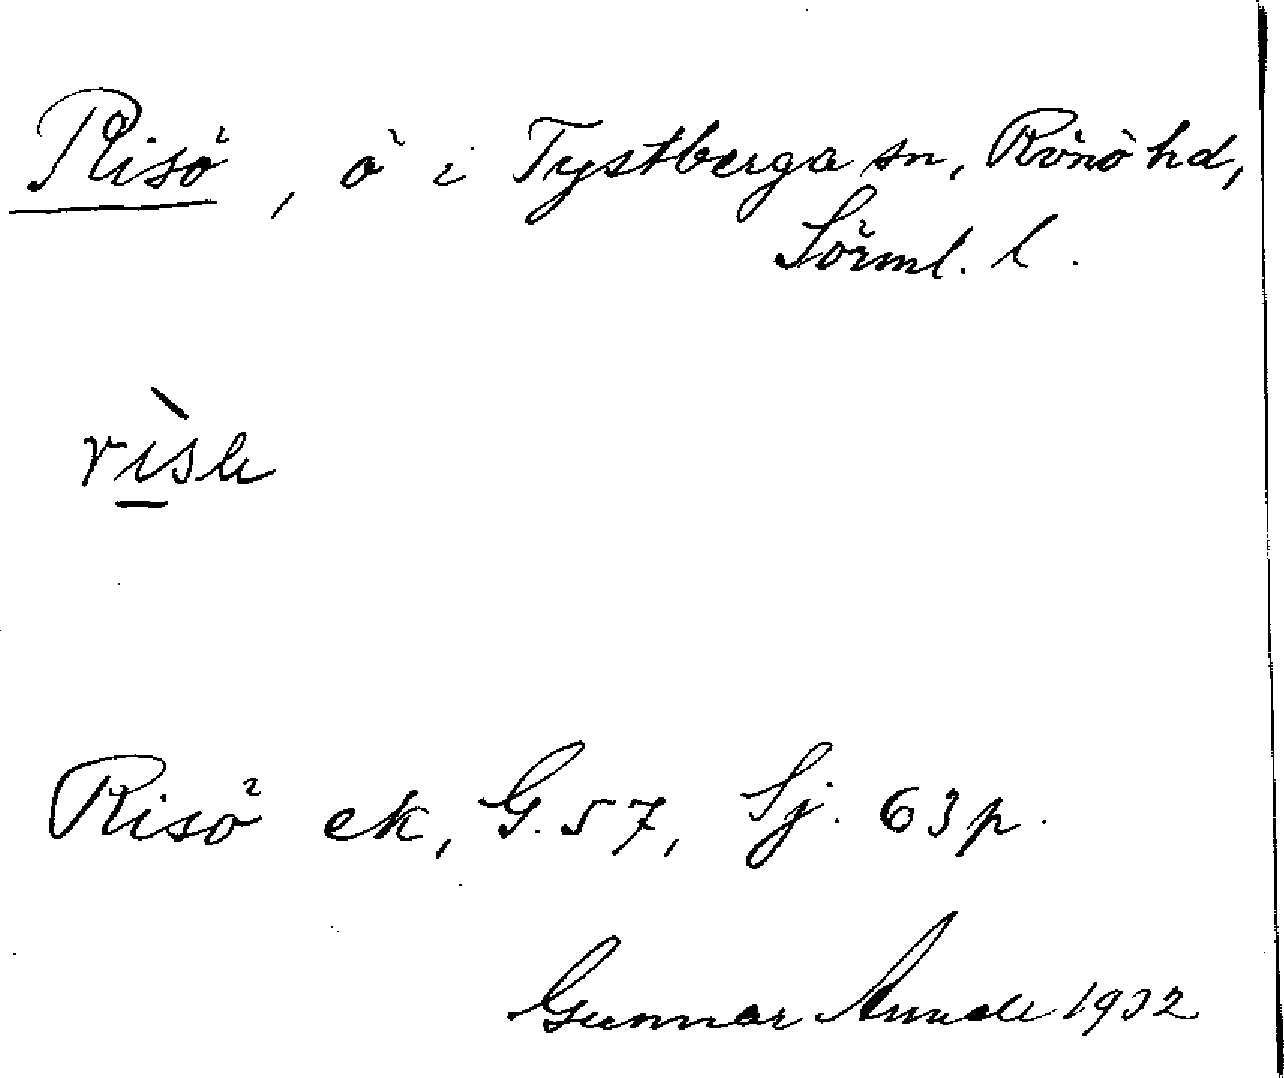 Risö, ö i Tystberga sn, Rönö hd,
Sörml. l.
Risö ek, G. 57, Sj. 63 p.
Gunnar 1932